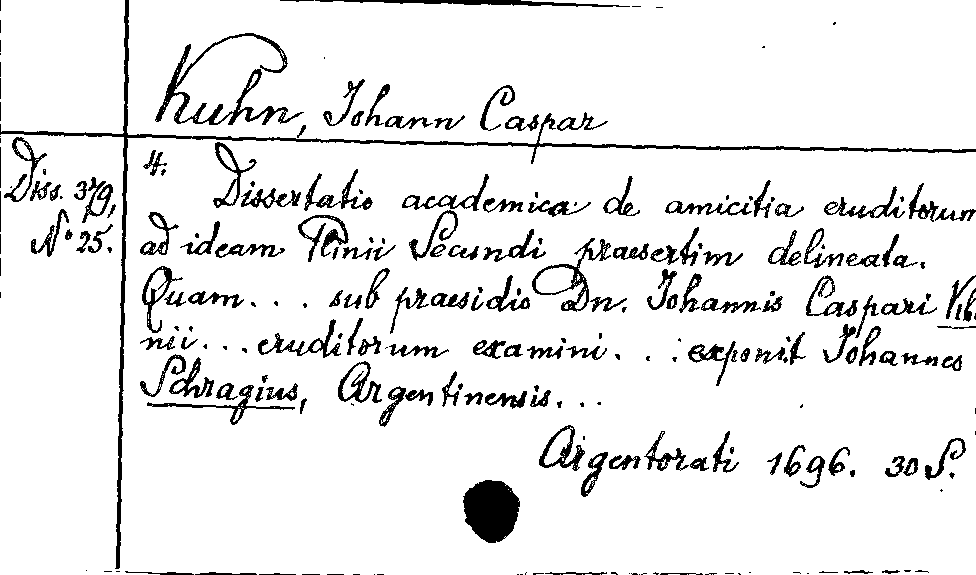 Kuhn, Johann Caspar
Diss. 379,
No 25.
4. Dissertatio academica de amicitia eruditorum
ad ideam Plinii Secundi praesertim delineata.
Quam... sub praesidio Dn. Johannis Caspari
nii... eruditorum examini... exponit Johannes
Schragius, Argentinensis...
Argentorati 1696. 30 S.